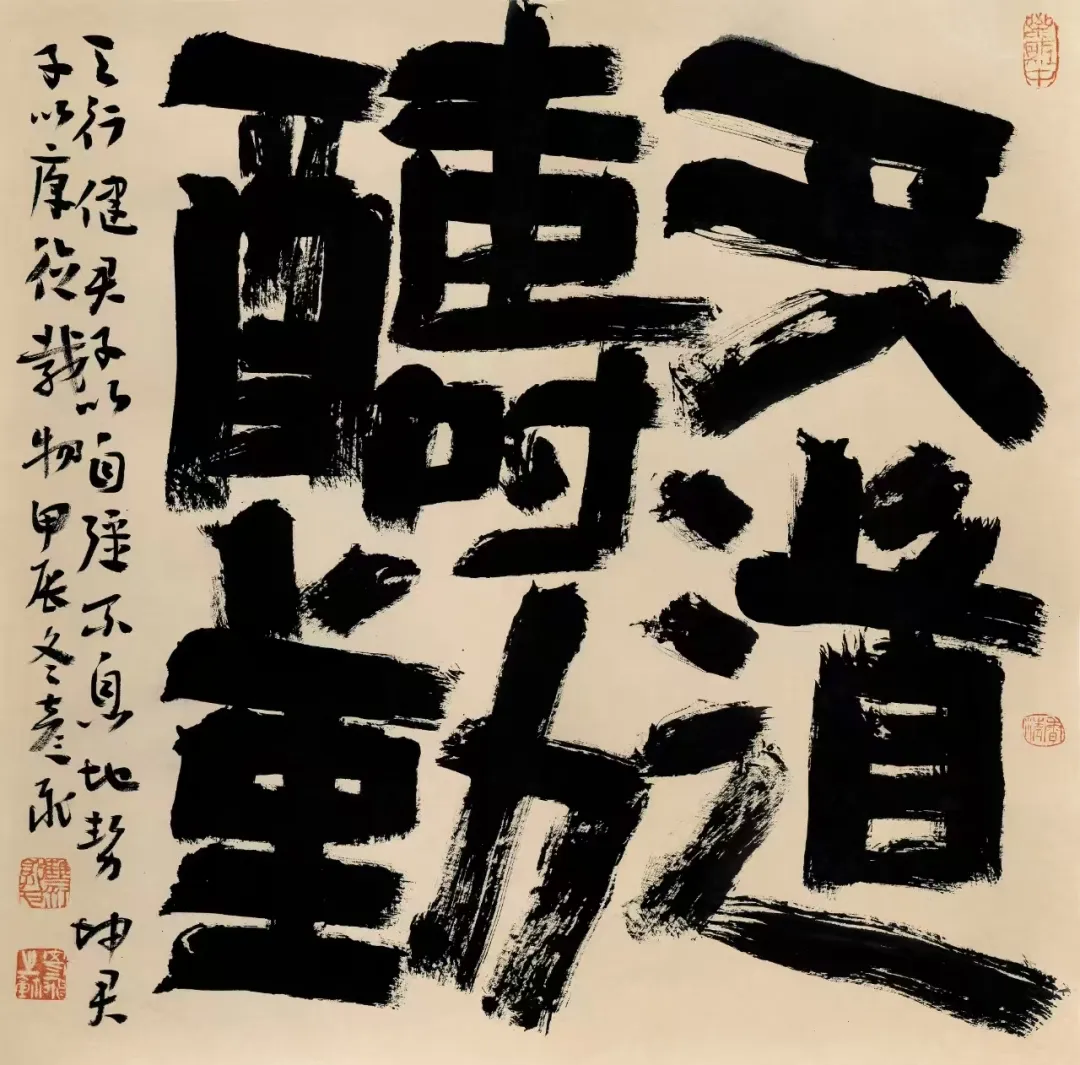 天道
醻勤
天行健君子以自强不息地势坤君
子以厚德载物甲辰冬彦